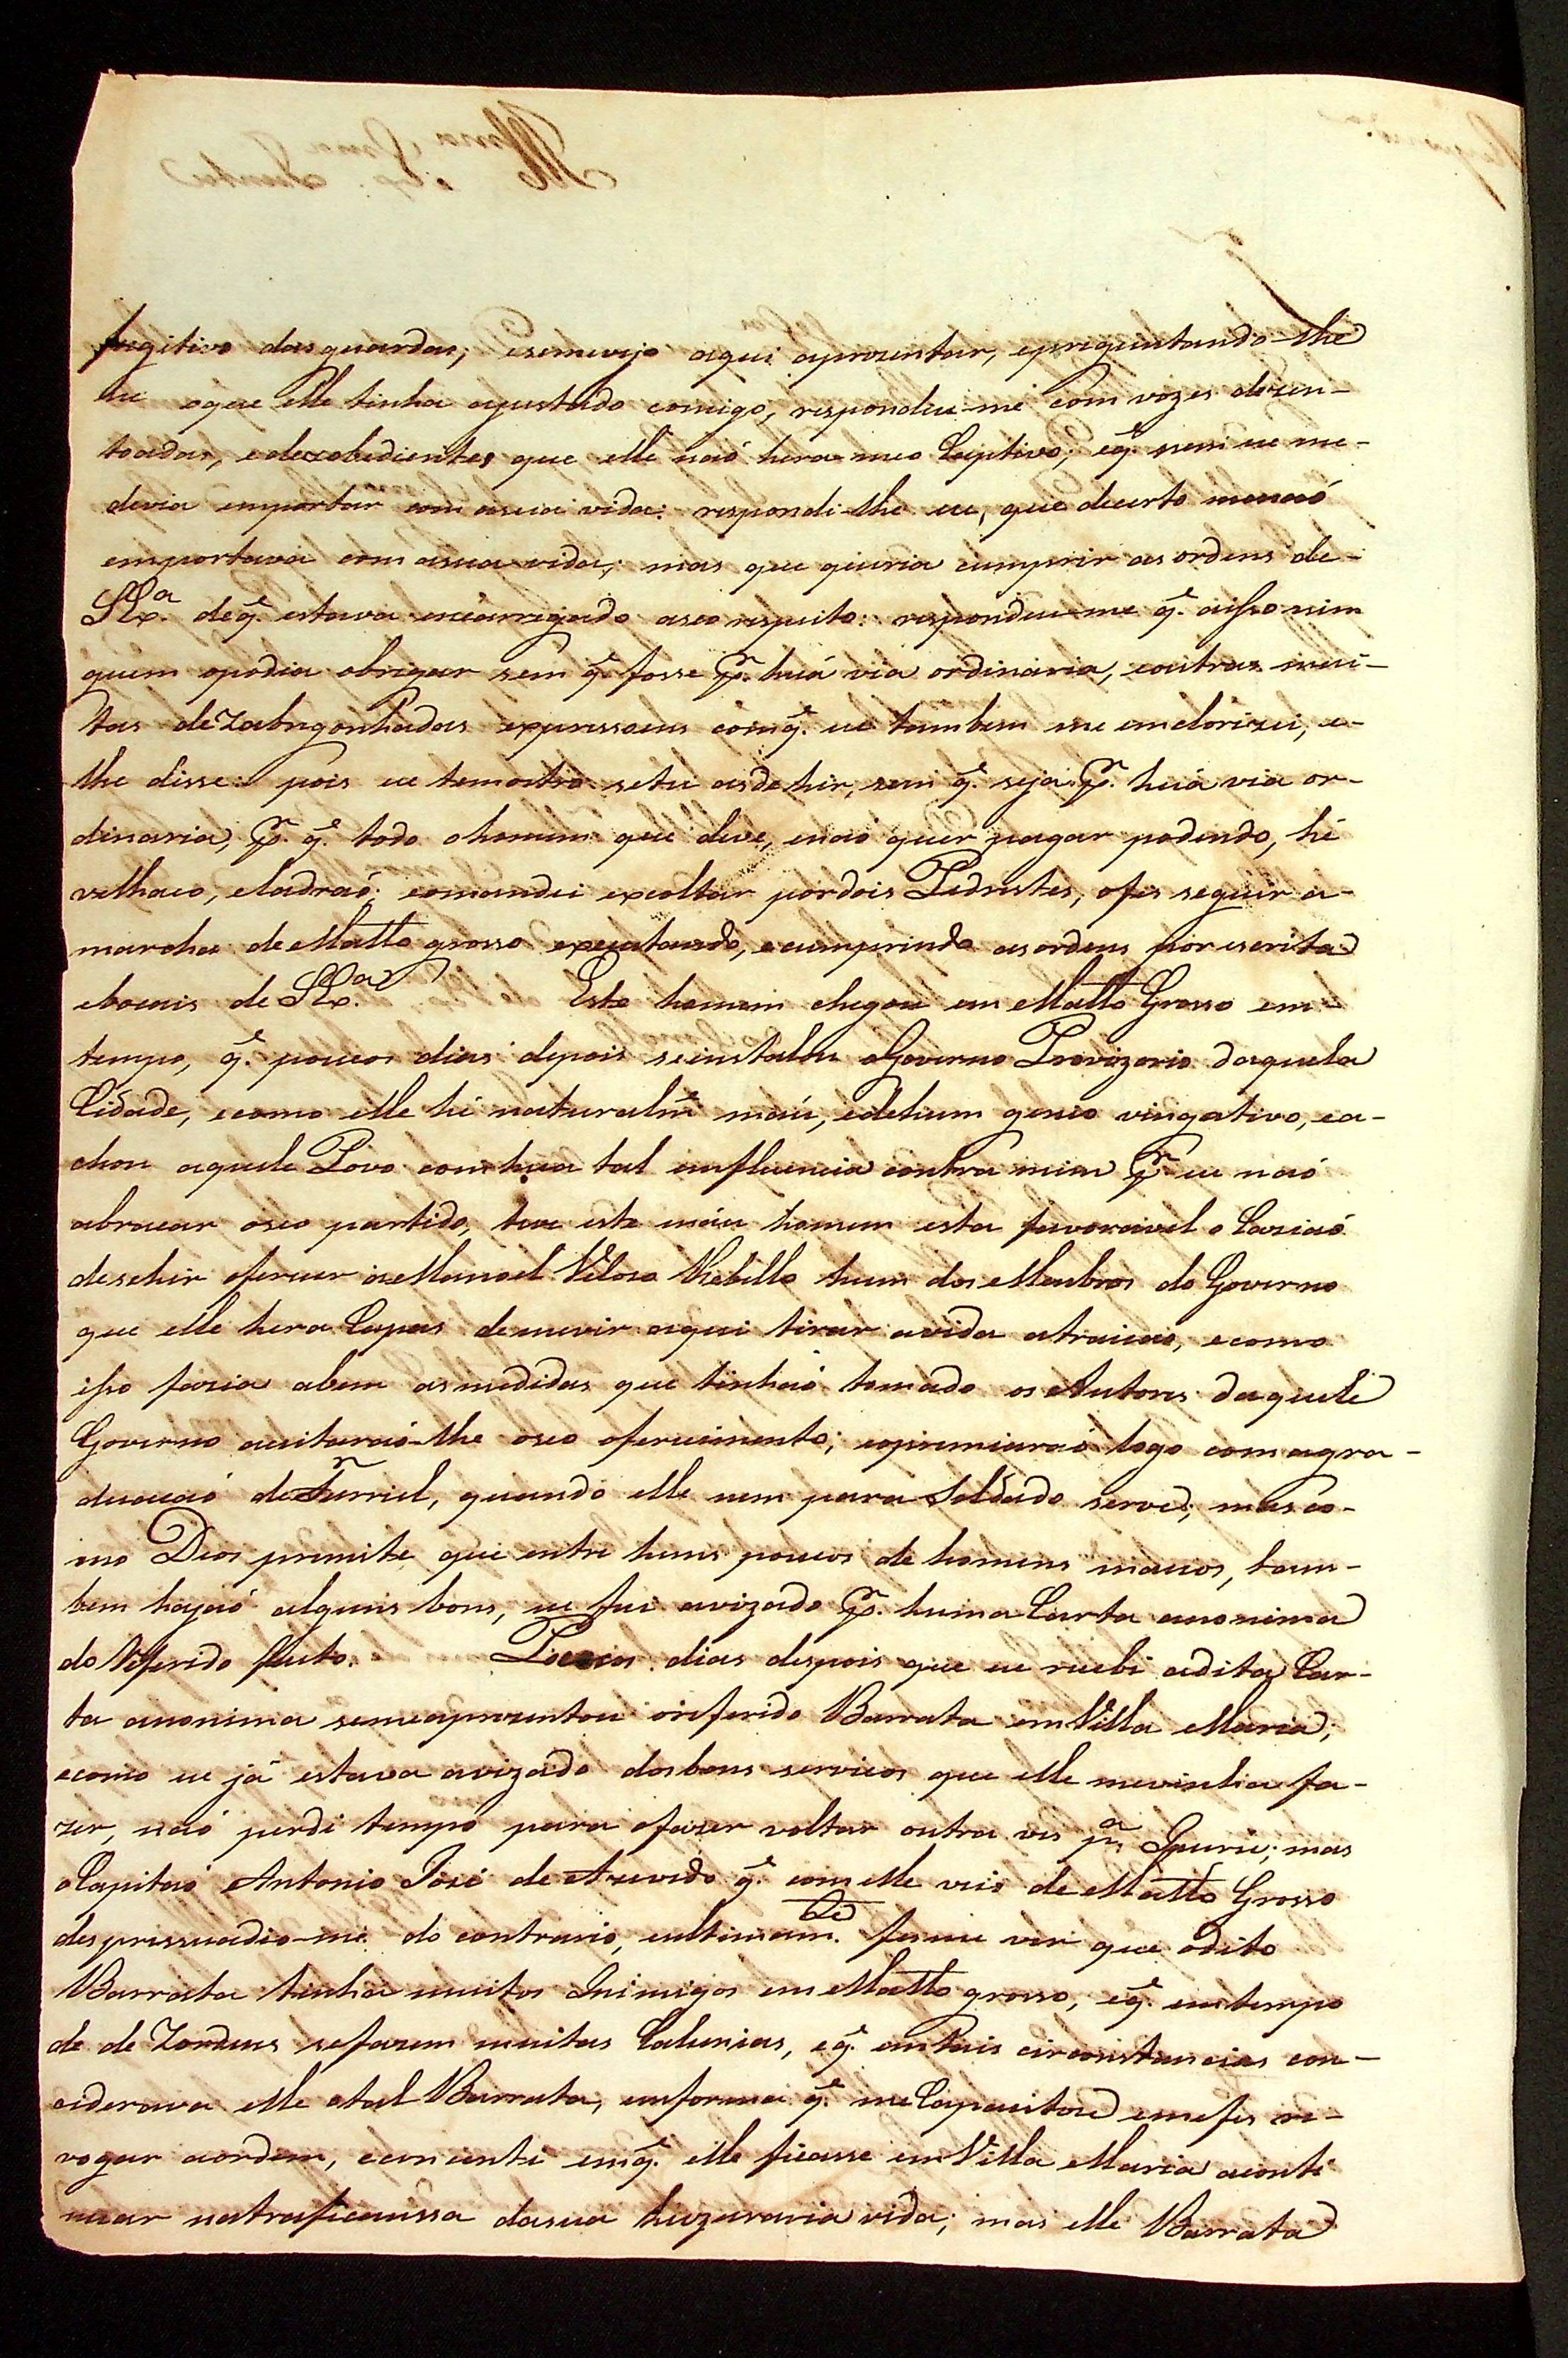 fugitivo das guardas; esemevejo aqui aprozentar, epreguntando-lhe
eu oque elle tinha ajustado comigo, respondeu-me com vozes dezen-
toadas, edezobedientes que elle naõ hera meo Captivo; eq̃. nem eu me-
devia emportar com asua vida: respondi-lhe eu, que decerto menaõ
emportava com asua vida, mas que queria cumprir as ordens de-
S. Exª. deq̃. estava encarregado aseo respeito: respondeu-me q̃. aisso nim
guem opodia obrigar sem q̃. fosse p̃r. huã via ordinaria, eoutras mui-
tas dezabrgonhadas expressoens comq̃. eu tambem me emclorizei, e-
lhe disse: pois eu temostro setu asdehir, sem q̃. seja p̃r. huã via or-
dinaria, p̃r. q̃. todo ohomem que deve, enaõ quer pagar podendo, hé
velhaco, eladraõ; eomandei excoltar pordois Pedrestes, ofes seguir a-
marcha de Matto grosso exzecutando, ecumprindo asordens por escrita
ebocais de S. Exª. Este homem chegou em Matto Grosso em-
tempo, q̃. poucos dias depois seinstalou oGoverno Provizorio daquela
Cidade, ecomo elle hé naturalmẽ máu, edehum genio vingativo, ea-
chou aquele Povo comhua tal emfluencia contra mim p̃r eu naõ
abracar oseo partido, teve este máu homem esta favoravel oCaziaõ
desehir oferecer aeManoel Veloso Rebello hum dos Membros do Governo
que elle hera Capas demevir aqui tirar avida atraicaõ, ecomo
isso fazia abem asmedidas que tinhaõ tomado os Autores daquele
Governo aceitaraõ-lhe oseo oferecimento; eopremiaraõ logo comagra-
duacaõ de Furriel, quando elle nem para Soldado serve; mas co-
mo Deos premite que entre huns poucos de homens maus, tam-
bem hajaõ alguns bons, eu fui avizado p̃r. huma Carta anonima
do Referido feito. Poucos dias despois que eu recebi adita Car-
ta anonima semeaprezentou oreferido Barrata emVilla Maria;
ecomo eu já estava avizado dosbons servicos que elle mevinha fa-
zer, naõ perdi tempo para ofazer voltar outra ves pª; mas
oCapitaõ Antonio José de Azevedo q̃. comelle veio de Matto Grosso
desprssuadio-me do contrario, eultimamte. fesme ver que odito
Barrata tinha muitos Inimigos em Matto grosso, eq̃. emtempo
de de Zordens sefazem muitas Calunias, eq̃. emtais circonstancias con-
ciderava elle otal Barrata, emforma q̃. meCapacitou emefes re-
vogar aordem, econcenti emq̃. elle ficasse em Villa Maria aconti
nuar natraficancia dasua huzuraria vida; mas elle Barrata